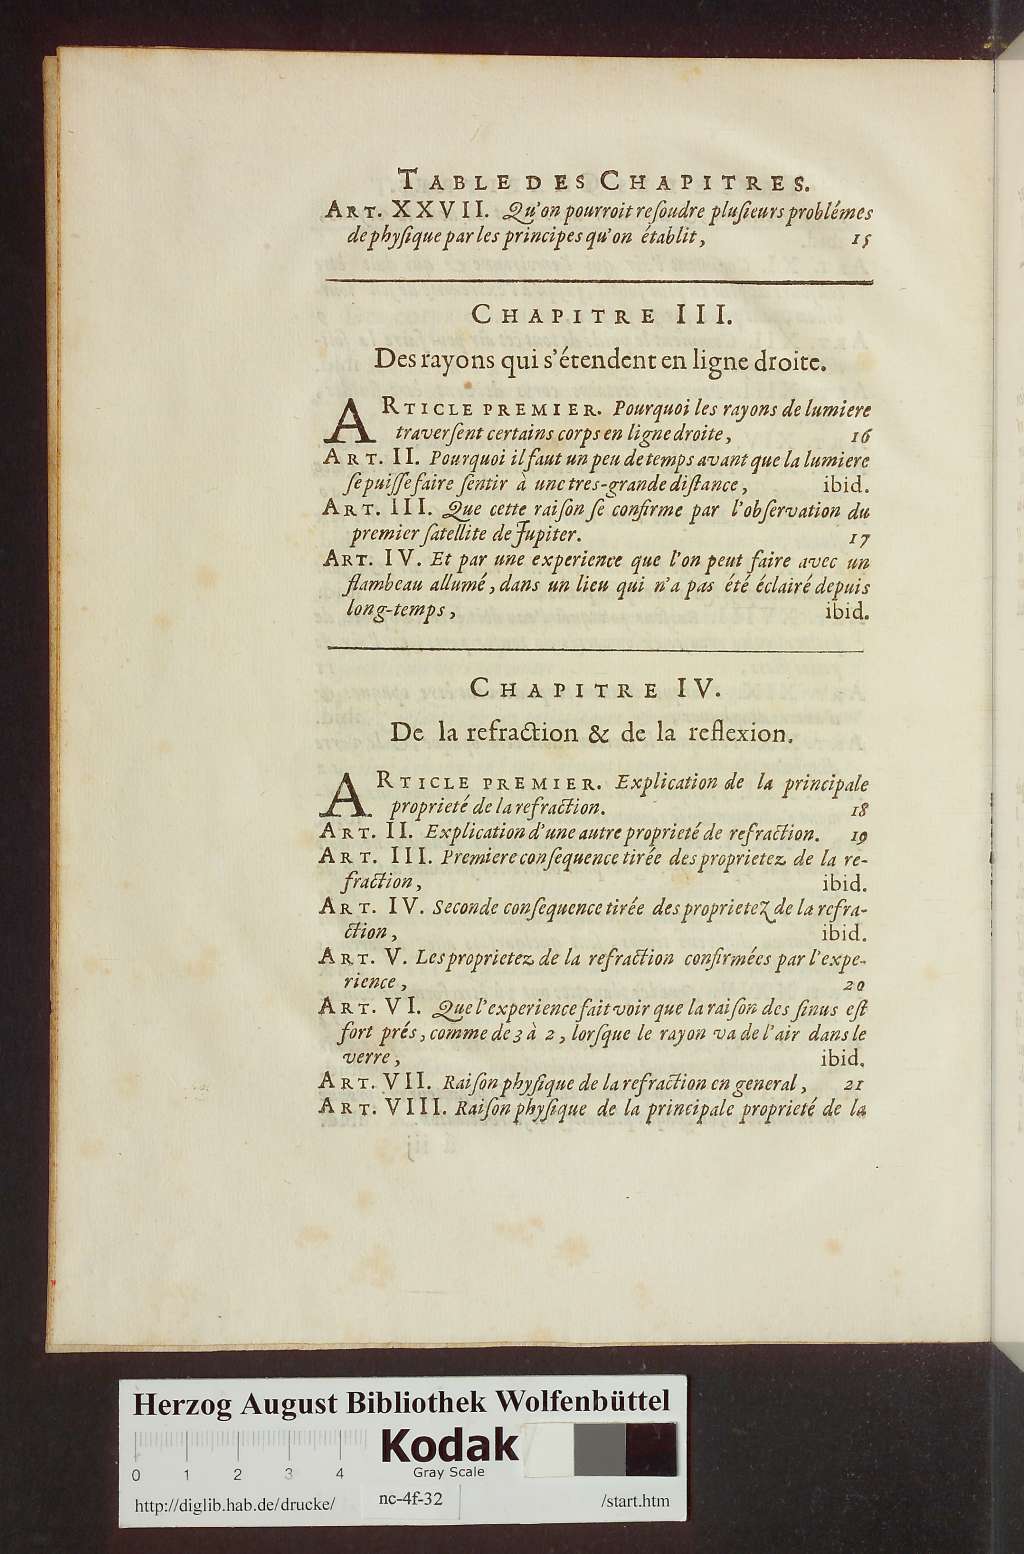 TABLE DES CHAPITRES.
ART. XXVII. Qu'on pourroit reſoudre pluſieurs problémes
de phyſique par les principes qu'on établit, 15
CHAPITRE III.
Des rayons qui s'étendent en ligne droite.
ARTICLE PREMIER. Pourquoi les rayons de lumiere
traverſent certains corps en ligne droite, 16
ART. II. Pourquoi il faut un peu de temps avant que la lumiere
ſe puiſſe faire ſentir à une tres-grande diſtance, ibid.
ART. III. Que cette raiſon ſe confirme par l'obſervation du
premier ſatellite de Jupiter. 17
ART. IV. Et par une experience que l'on peut faire avec un
flambeau allumé, dans un lieu qui n'a pas été éclairé depuis
long-temps, ibid.
CHAPITRE IV.
De la refraction & de la reflexion.
ARTICLE PREMIER. Explication de la principale
proprieté de la refraction. 18
ART. II. Explication d'une autre proprieté de refraction. 19
ART. III. Premiere conſequence tirée des proprietez de la re-
fraction, ibid.
ART. IV. Seconde conſequence tirée des proprietez de la refra-
ction, ibid.
ART. V. Les proprietez de la refraction confirmées par l'expe-
rience, 20
ART. VI. Que l'experience fait voir que la raiſon des ſinus eſt
fort prés, comme de 3 à 2, lorſque le rayon va de l'air dans le
verre, ibid.
ART. VII. Raiſon phyſique de la refraction en general, 21
ART. VIII. Raiſon phyſique de la principale proprieté de la
Herzog August Bibliothek Wolfenbüttel
Kodak
Gray Scale
0 1 2 3 4
http://diglib.hab.de/drucke/ nc-4f-32 /start.htm